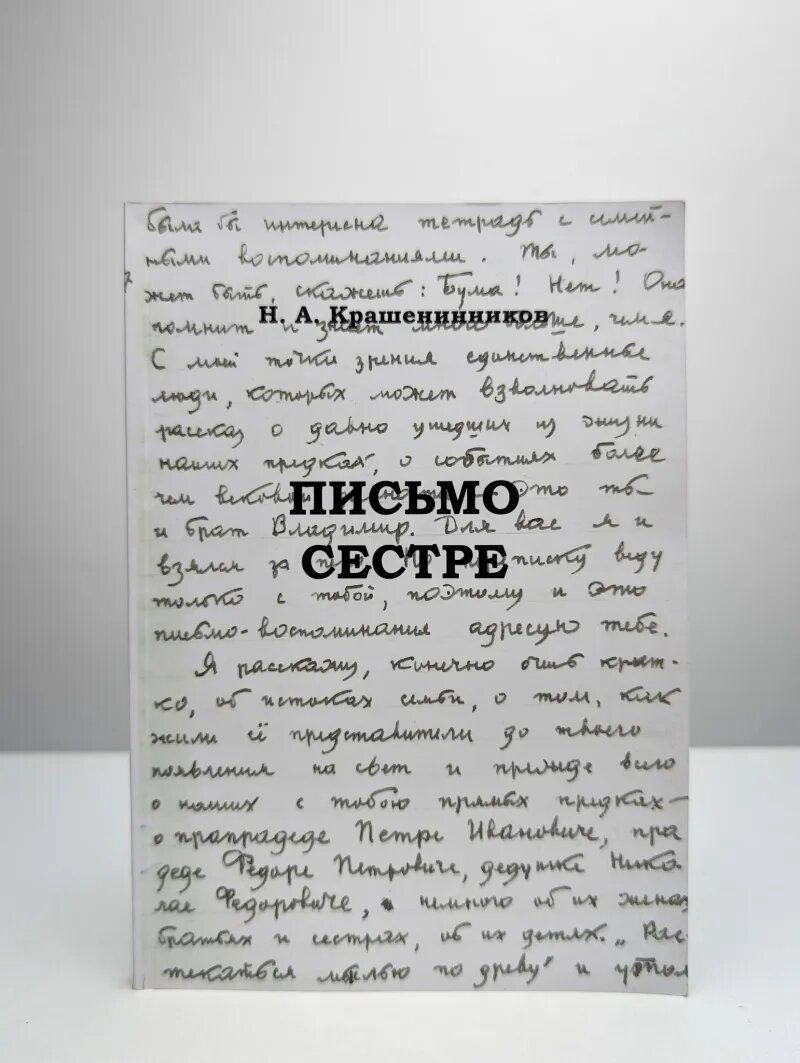 была бы интересна тетрадь с семей-
ными воспоминаниями. Ты, мо-
жет быть, скажешь: Бума! Нет! Она
Н. А. Крашенинников
помнит и знает много больше, чем я.
С моей точки зрения единственные
люди, которых может взволновать
рассказ о давно ушедших из жизни
наших предках, о событиях более
чем вековой — это ты
ПИСЬМО
и брат Владимир. Для вас я и
взялся за переписку веду
СЕСТРЕ
только с тобой, поэтому и это
письмо-воспоминания адресую тебе.
Я расскажу, конечно очень крат-
ко, об истоках семьи, о том, как
жили её представители до твоего
появления на свет и прежде всего
о наших с тобою прямых предках —
о прапрадеде Петре Ивановиче, пра
деде Федоре Петровиче, дедушке Нико-
лае Федоровиче, немного об их женах,
братьях и сестрах, об их детях. „Рас-
текаться мыслью по древу" и